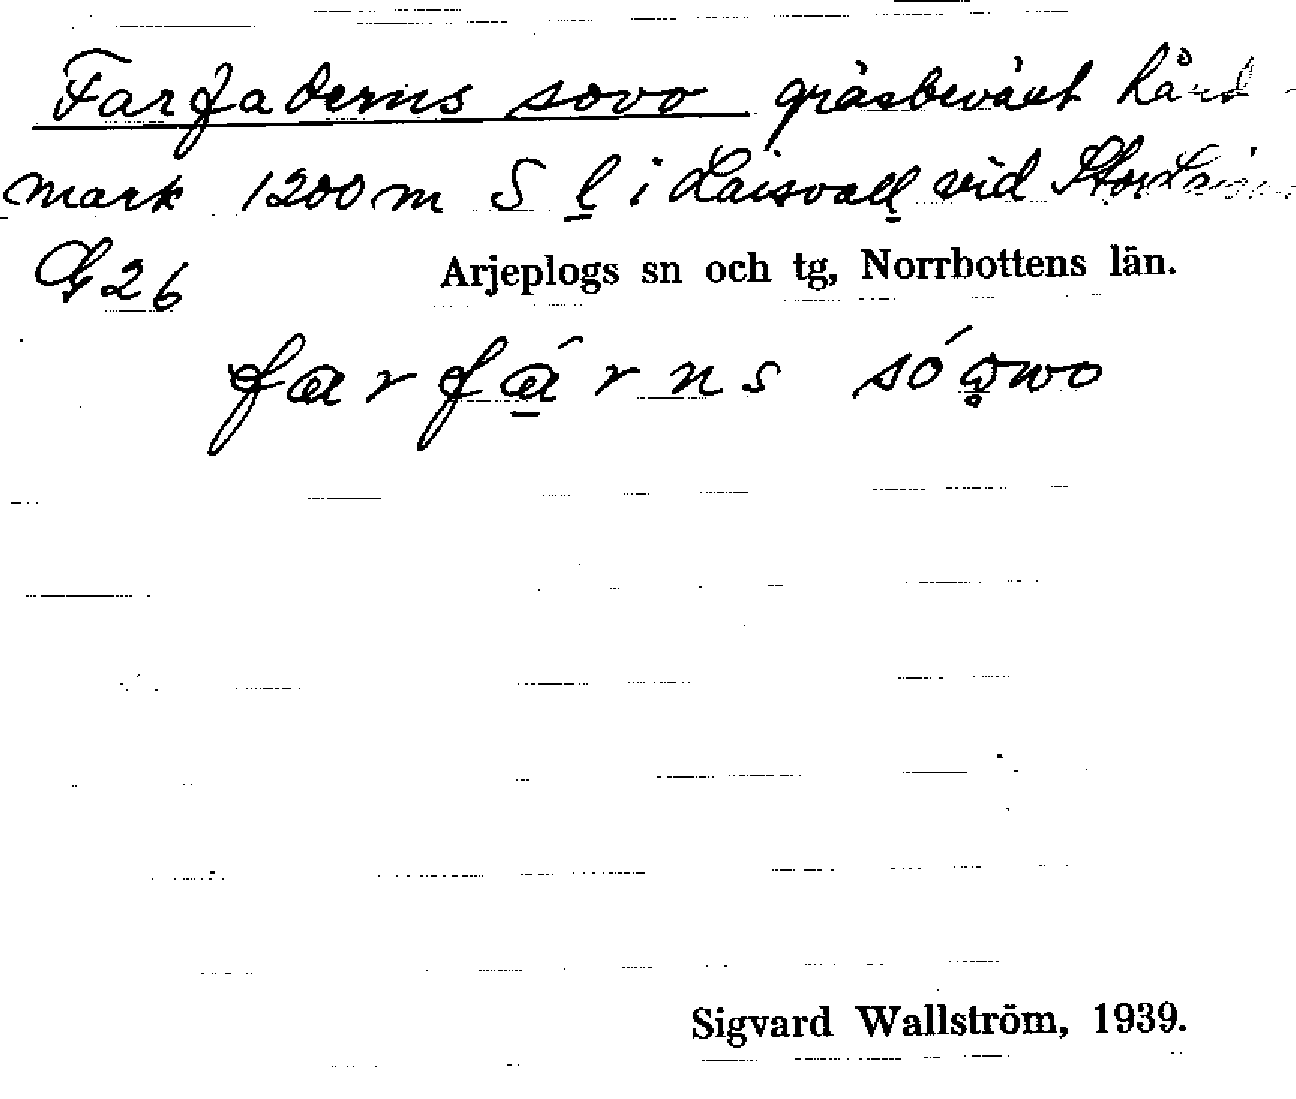 Farfaderns sovo gräsbeväxt hård-
mark 1200 m S l i Laisvall vid Stor
G 26
Arjeplogs sn och tg, Norrbottens län.
farfárns
Sigvard Wallström, 1939.